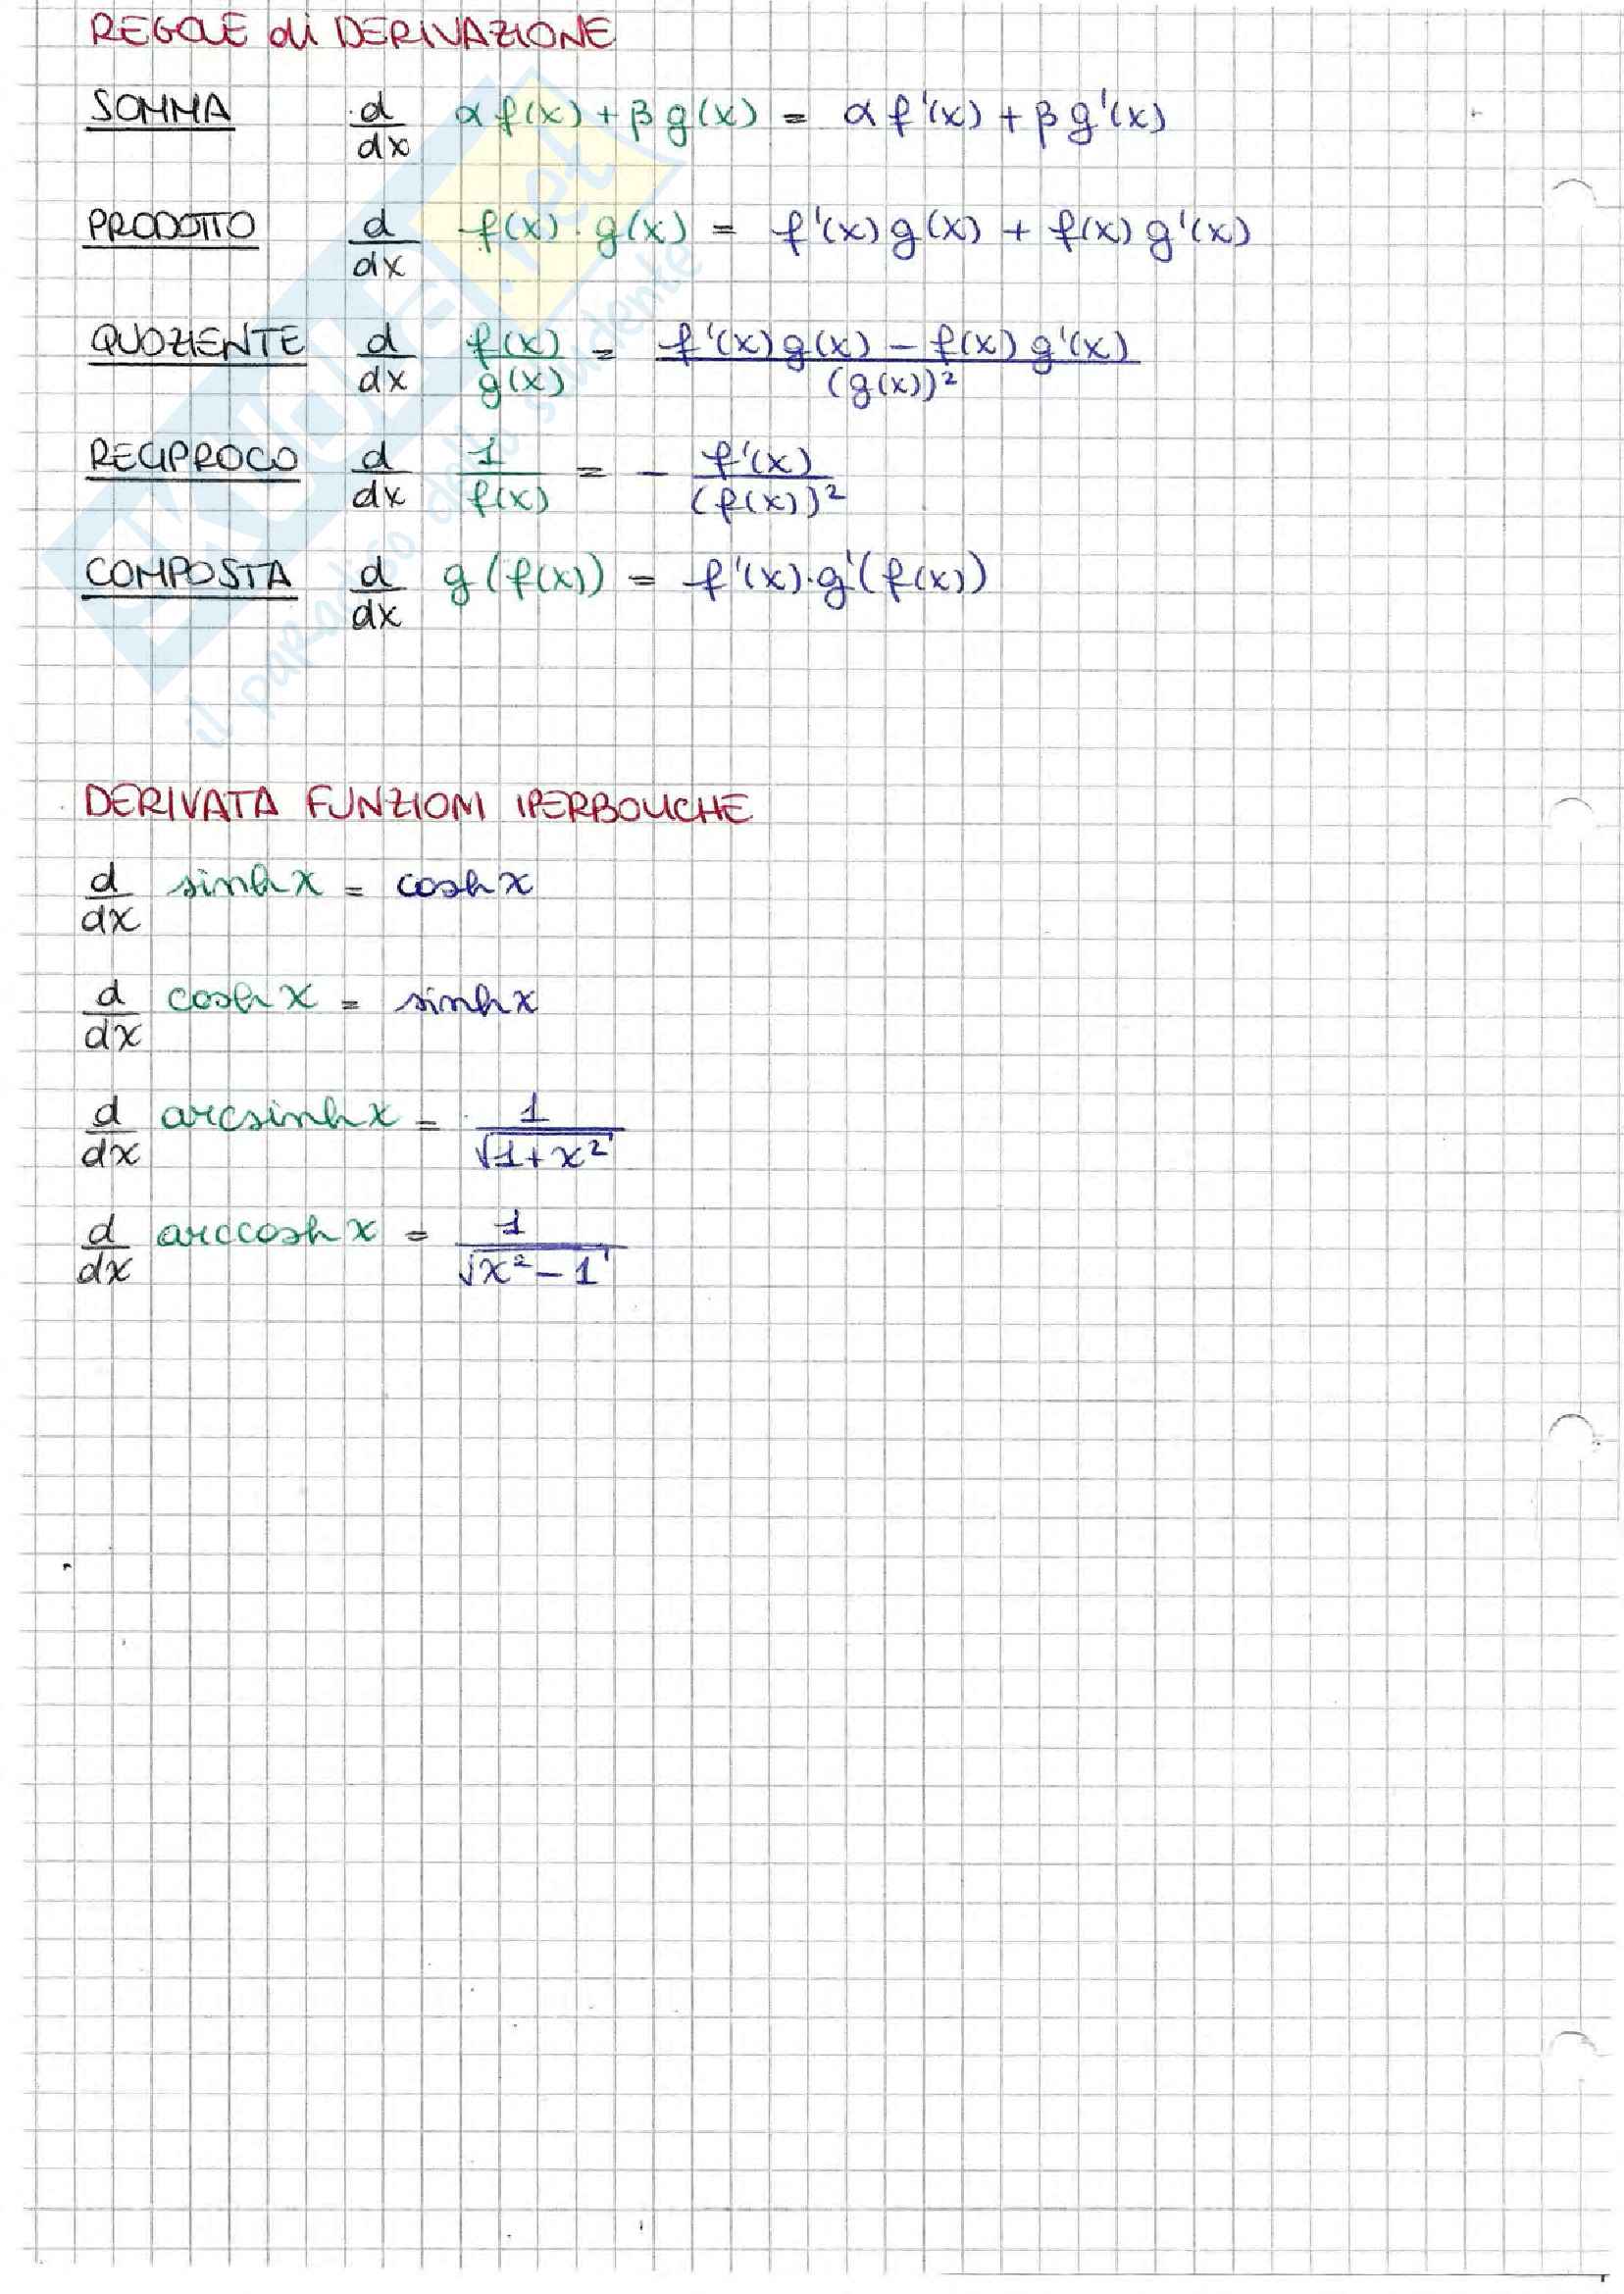 REGOLE di DERIVAZIONE
SOMMA d/dx α f(x) + β g(x) = α f'(x) + β g'(x)
PRODOTTO d/dx f(x) · g(x) = f'(x) g(x) + f(x) g'(x)
QUOZIENTE d/dx f(x)/g(x) = f'(x) g(x) - f(x) g'(x) / (g(x))²
RECIPROCO d/dx 1/f(x) = - f'(x)/(f(x))²
COMPOSTA d/dx g(f(x)) = f'(x)·g'(f(x))
DERIVATA FUNZIONI IPERBOLICHE
d/dx sinh x = cosh x
d/dx cosh x = sinh x
d/dx arcsinh x = 1/√(1+x²)
d/dx arccosh x = 1/√(x²-1)